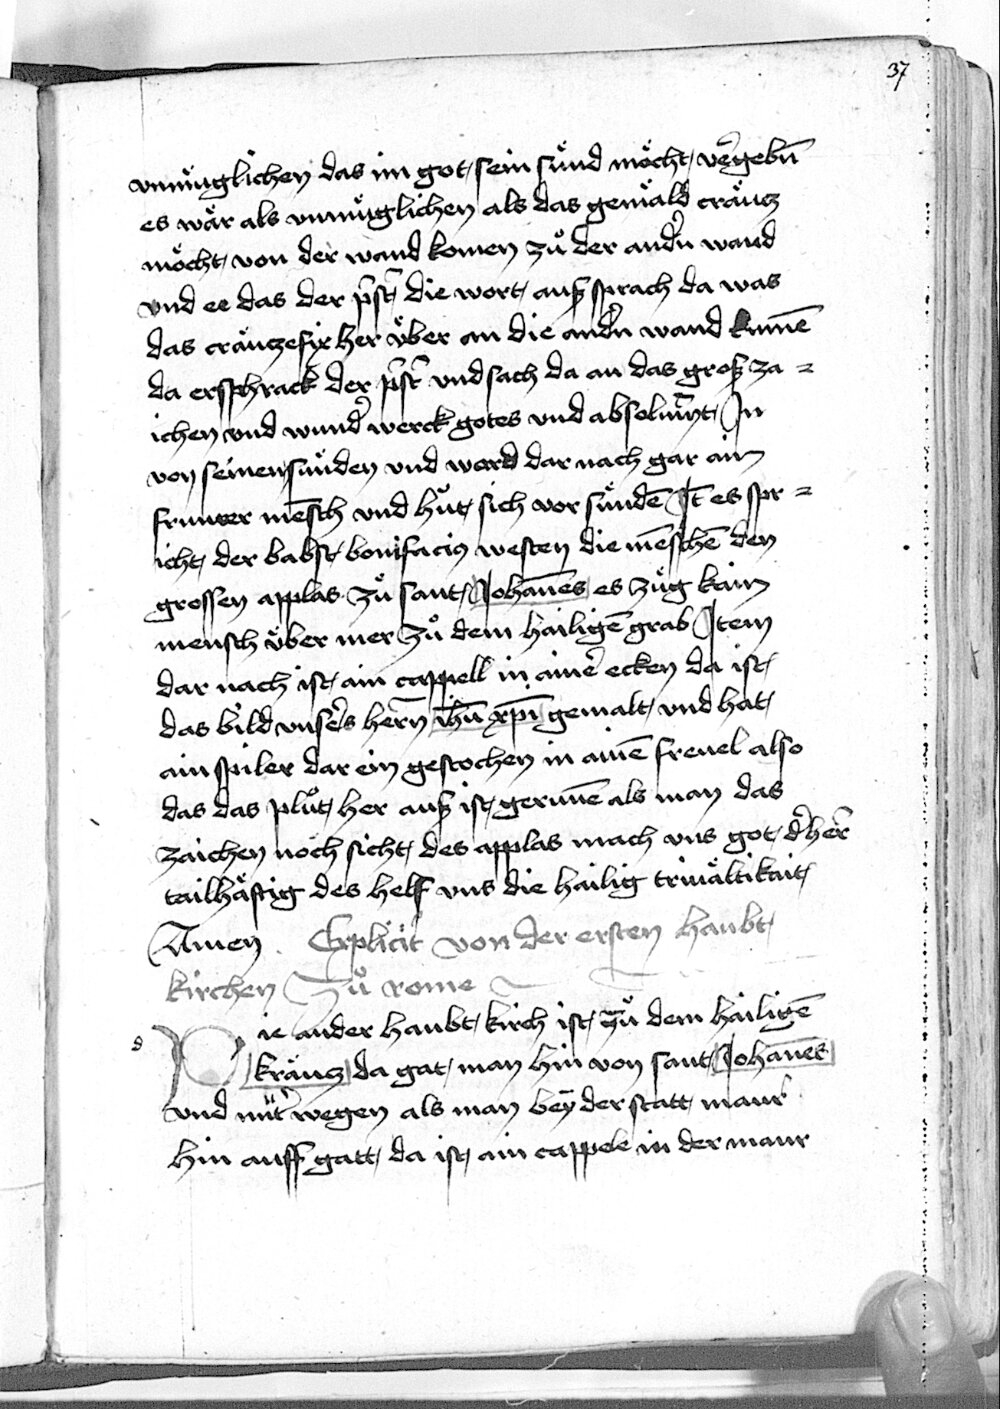 37
vnmüglichen das im got sein sünd möcht vergebñ
es wär als vnmüglichen als das gemäld cräucz
möcht von der wand komen zů der andn̄ wand
vnd ee das der pst̄ die wort auß sprach da was
das cräuczefix her vͤber an die andn̄ wand kumē
da ersphrack der pst̄ vnd sach da an das groß za=
ichen vnd wund werck gotes vnd absoluīt In
von seinen sünden vnd ward dar nach gar ain
frumer mēsch vnd hůt sich vor sündē It̄ es spr=
icht der babst bonifacius westen die mēschē den
grossen applas zů sant Johānes es zůg kain
mensch vͤber mer zů dem hailigē grab Item
dar nach ist ain cappell in aine ecken da ist
das bild vnsers hern̄ ihū xp̄i gemalt vnd hat
ain spiler dar ein gestochen in ainē freuel also
das das plůt her auß ist gerunē als man das
zaichen noch sicht des applas mach vns got d her̄
tailhäftig des helf vns die hailig triuältikait
Amen Explicit von der ersten haubt
kirchen Zů rome
d
Die ander haubt kirch ist zů dem hailigē
kräucz da gat man hin von sant Johānes
vnd mit wegen als man beÿ der statt maur
hin auff gatt da ist ain cappele in der maur